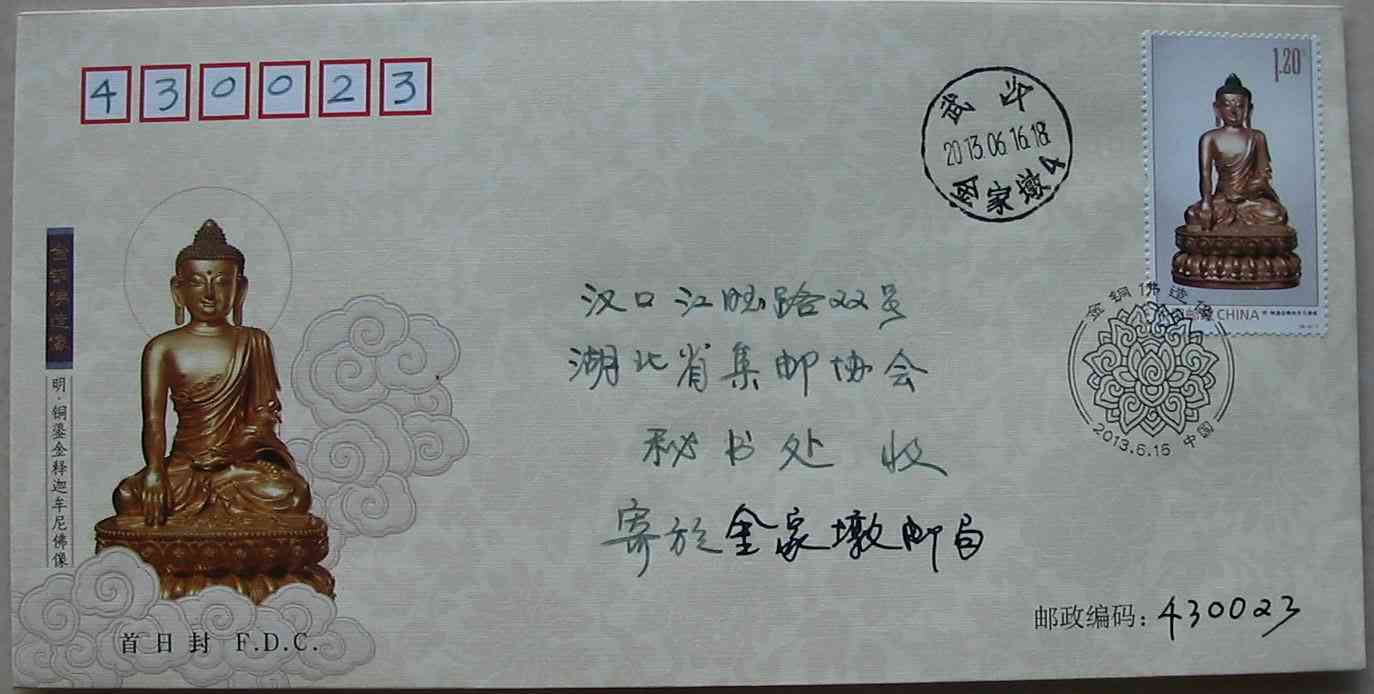 430023
1.20
武汉
2013.06.16.18
金家墩4
金铜佛造像
明·铜鎏金释迦牟尼佛像
汉口江旺路双号
湖北省集邮协会
秘书处 收
寄于金家墩邮局
CHINA
金铜佛造像
2013.6.15 中国
首日封 F.D.C.
邮政编码：430023